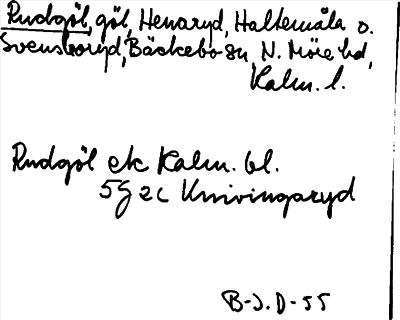 Rudgöl, göl, Henaryd, Haltemåla o.
Svensboryd, Bäckebo sn, N. Möre hd,
Kalm. l.
Rudgöl ek Kalm. bl.
5G 2c Knivingaryd
B-J.D-55